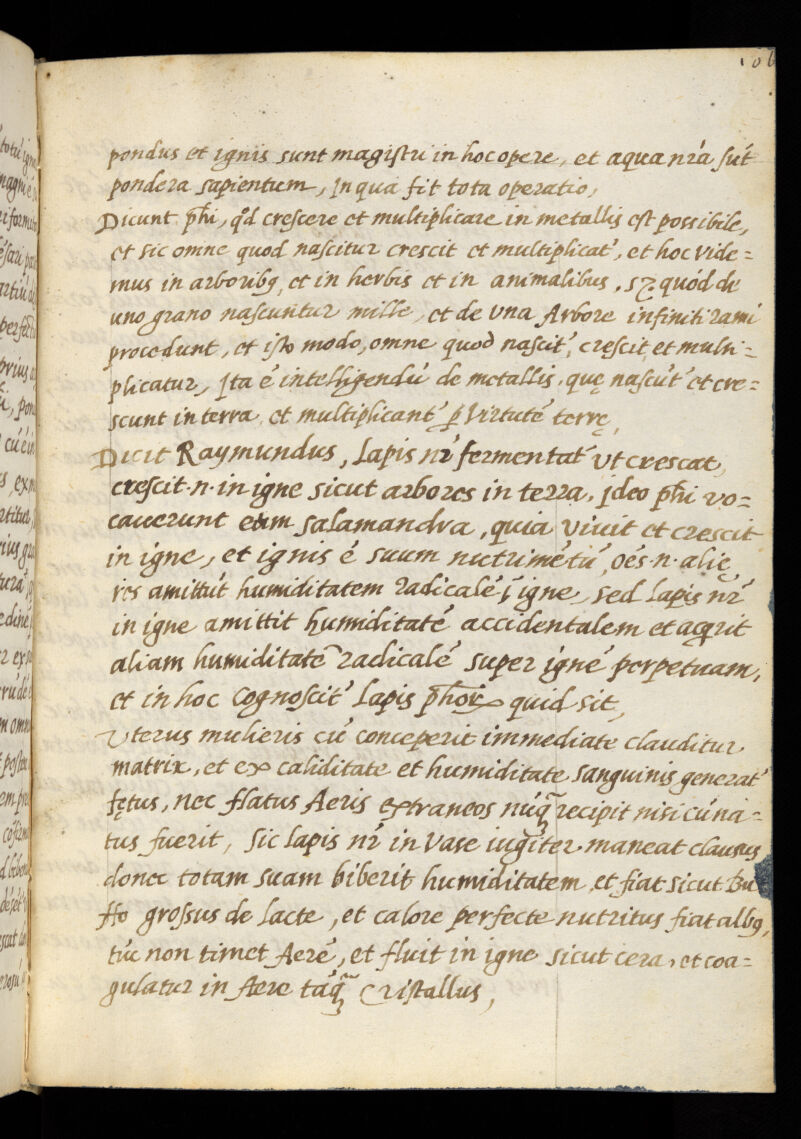 106
pondus et ignis sunt magistri in hoc opere, et aqua nr̃a sũt
pondera sapientum, in qua fit tota operatio,
Dicunt pħi, qd̃ crescere et multiplicare in metallis est possibile,
et sic omne quod nascitur crescit et multiplicat̃, et hoc vide=
mus in arboribꝫ, et in herbis et in animalibus. sꝫ quód de
uno grano nascuntur mille, et de una Arbore infiniti rami
procedunt, et isto modo, omne quod nascit̃, crescit et multi=
plicatur, Ita ẽ intelligendũ de metallis, quę nascũt̃ et cre=
scunt in terra, et multiplicant̃ ꝑ virtutẽ terrę,
Dicit Raymundus, Lapis nr̃ fermentat̃ ut crescat,
crescit .n. in igne sicut arbores in terra, ideo pħi vo=
cauerunt eum salamandra, quia viuit et crescit
in igne, et ignis ẽ suum nutrimẽtũ, oẽs .n. alię
res amittũt humiditatem radicalẽ ĩ igne, sed Lapis nr̃
in igne amittit humiditatẽ accidentalem et acqrit
aliam humiditatẽ radicalẽ super ignẽ perpetuam,
et in hoc Cognoscit̃ Lapis pħoꝝ quid sit,
Uterus mulieris cũ conceperit immediate clauditur
matrix, et ex caliditate et humiditate sanguinis generat̃
fętus, nec flatus Aeris extraneos nũq̃ recipit nisi cũ na=
tus fuerit, Sic lapis nr̃ in Vase iugiter maneat clausus
donec totam suam biberit humiditatem, et fiat sicut Bu
ffo grossus de Lacte, et calore perfecte nutritus fiat albꝫ,
tũc non timet Aerẽ, et fluit in igne sicut cera, et coa=
gulatur in Aere tãq̃ Cristallus,